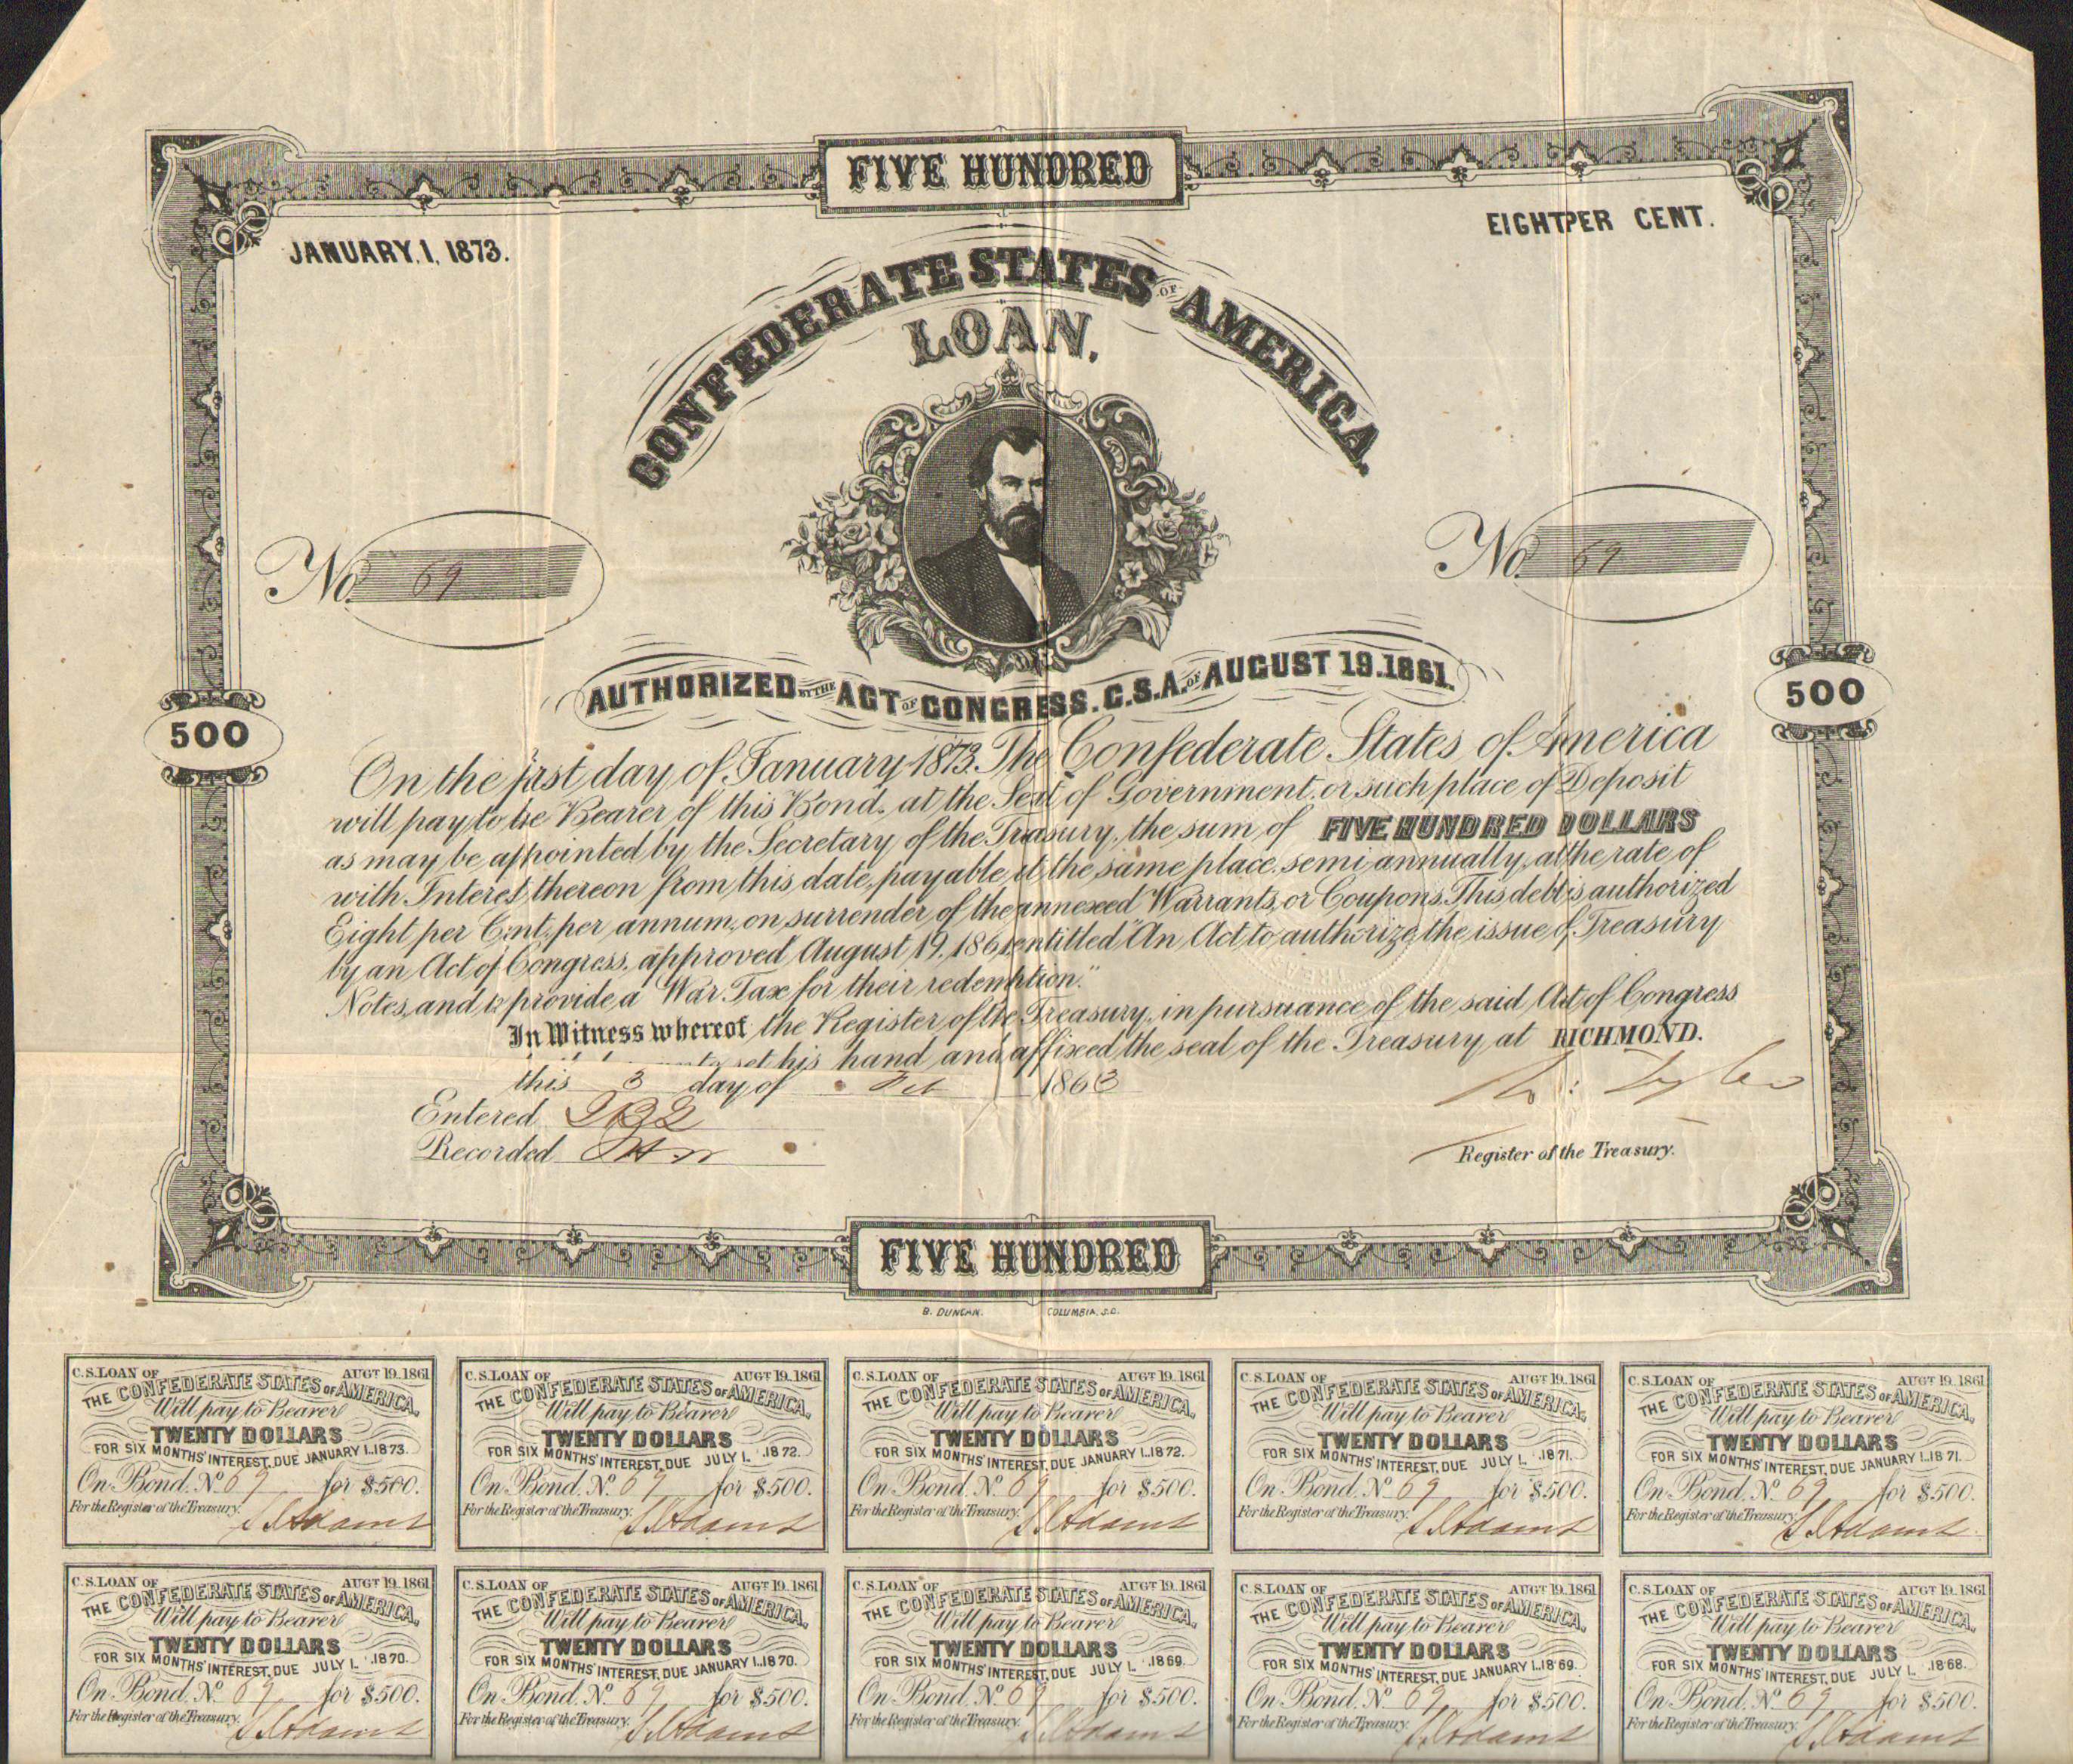 FIVE HUNDRED
JANUARY. 1, 1873.
EIGHT PER CENT.
CONFEDERATE STATES OF AMERICA.
LOAN,
No. 69
No. 69
AUTHORIZED BY THE ACT OF CONGRESS. C.S.A. OF AUGUST 19. 1861.
500
500
On the first day of January 1873. The Confederate States of America
will pay to the Bearer of this Bond, at the Seat of Government, or such place of Deposit
as may be appointed by the Secretary of the Treasury, the sum of FIVE HUNDRED DOLLARS
with Interest thereon from this date, payable at the same place semi-annually, at the rate of
Eight per Cent. per annum, on surrender of the annexed Warrants, or Coupons. This debt is authorized
by an Act of Congress, approved August 19. 1861, entitled "An Act to authorize the issue of Treasury
Notes, and to provide a War Tax for their redemption."
In Witness whereof the Register of the Treasury, in pursuance of the said Act of Congress
set his hand and affixed the seal of the Treasury, at RICHMOND.
this 3 day of Feb 1863
Entered
Recorded
R. Tyler
Register of the Treasury.
FIVE HUNDRED
B. DUNCAN. COLUMBIA, S.C.
C.S.LOAN OF AUGT 19.1861
THE CONFEDERATE STATES OF AMERICA,
Will pay to Bearer
TWENTY DOLLARS
FOR SIX MONTHS' INTEREST, DUE JANUARY 1..1873.
On Bond. No. 69 for $500.
For the Register of the Treasury.
C.S.LOAN OF AUGT 19.1861
THE CONFEDERATE STATES OF AMERICA,
Will pay to Bearer
TWENTY DOLLARS
FOR SIX MONTHS' INTEREST, DUE JULY 1. .1872.
On Bond. No. 69 for $500.
For the Register of the Treasury.
C.S.LOAN OF AUGT 19.1861
THE CONFEDERATE STATES OF AMERICA,
Will pay to Bearer
TWENTY DOLLARS
FOR SIX MONTHS' INTEREST, DUE JANUARY 1..1872.
On Bond. No. 69 for $500.
For the Register of the Treasury.
C.S.LOAN OF AUGT 19.1861
THE CONFEDERATE STATES OF AMERICA,
Will pay to Bearer
TWENTY DOLLARS
FOR SIX MONTHS' INTEREST, DUE JULY 1. .1871.
On Bond. No. 69 for $500.
For the Register of the Treasury.
C.S.LOAN OF AUGT 19.1861
THE CONFEDERATE STATES OF AMERICA,
Will pay to Bearer
TWENTY DOLLARS
FOR SIX MONTHS' INTEREST, DUE JANUARY 1..1871.
On Bond. No. 69 for $500.
For the Register of the Treasury.
C.S.LOAN OF AUGT 19.1861
THE CONFEDERATE STATES OF AMERICA,
Will pay to Bearer
TWENTY DOLLARS
FOR SIX MONTHS' INTEREST, DUE JULY 1. .1870.
On Bond. No. 69 for $500.
For the Register of the Treasury.
C.S.LOAN OF AUGT 19.1861
THE CONFEDERATE STATES OF AMERICA,
Will pay to Bearer
TWENTY DOLLARS
FOR SIX MONTHS' INTEREST, DUE JANUARY 1..1870.
On Bond. No. 69 for $500.
For the Register of the Treasury.
C.S.LOAN OF AUGT 19.1861
THE CONFEDERATE STATES OF AMERICA,
Will pay to Bearer
TWENTY DOLLARS
FOR SIX MONTHS' INTEREST, DUE JULY 1. .1869.
On Bond. No. 69 for $500.
For the Register of the Treasury.
C.S.LOAN OF AUGT 19.1861
THE CONFEDERATE STATES OF AMERICA,
Will pay to Bearer
TWENTY DOLLARS
FOR SIX MONTHS' INTEREST, DUE JANUARY 1..1869.
On Bond. No. 69 for $500.
For the Register of the Treasury.
C.S.LOAN OF AUGT 19.1861
THE CONFEDERATE STATES OF AMERICA,
Will pay to Bearer
TWENTY DOLLARS
FOR SIX MONTHS' INTEREST, DUE JULY 1. .1868.
On Bond. No. 69 for $500.
For the Register of the Treasury.